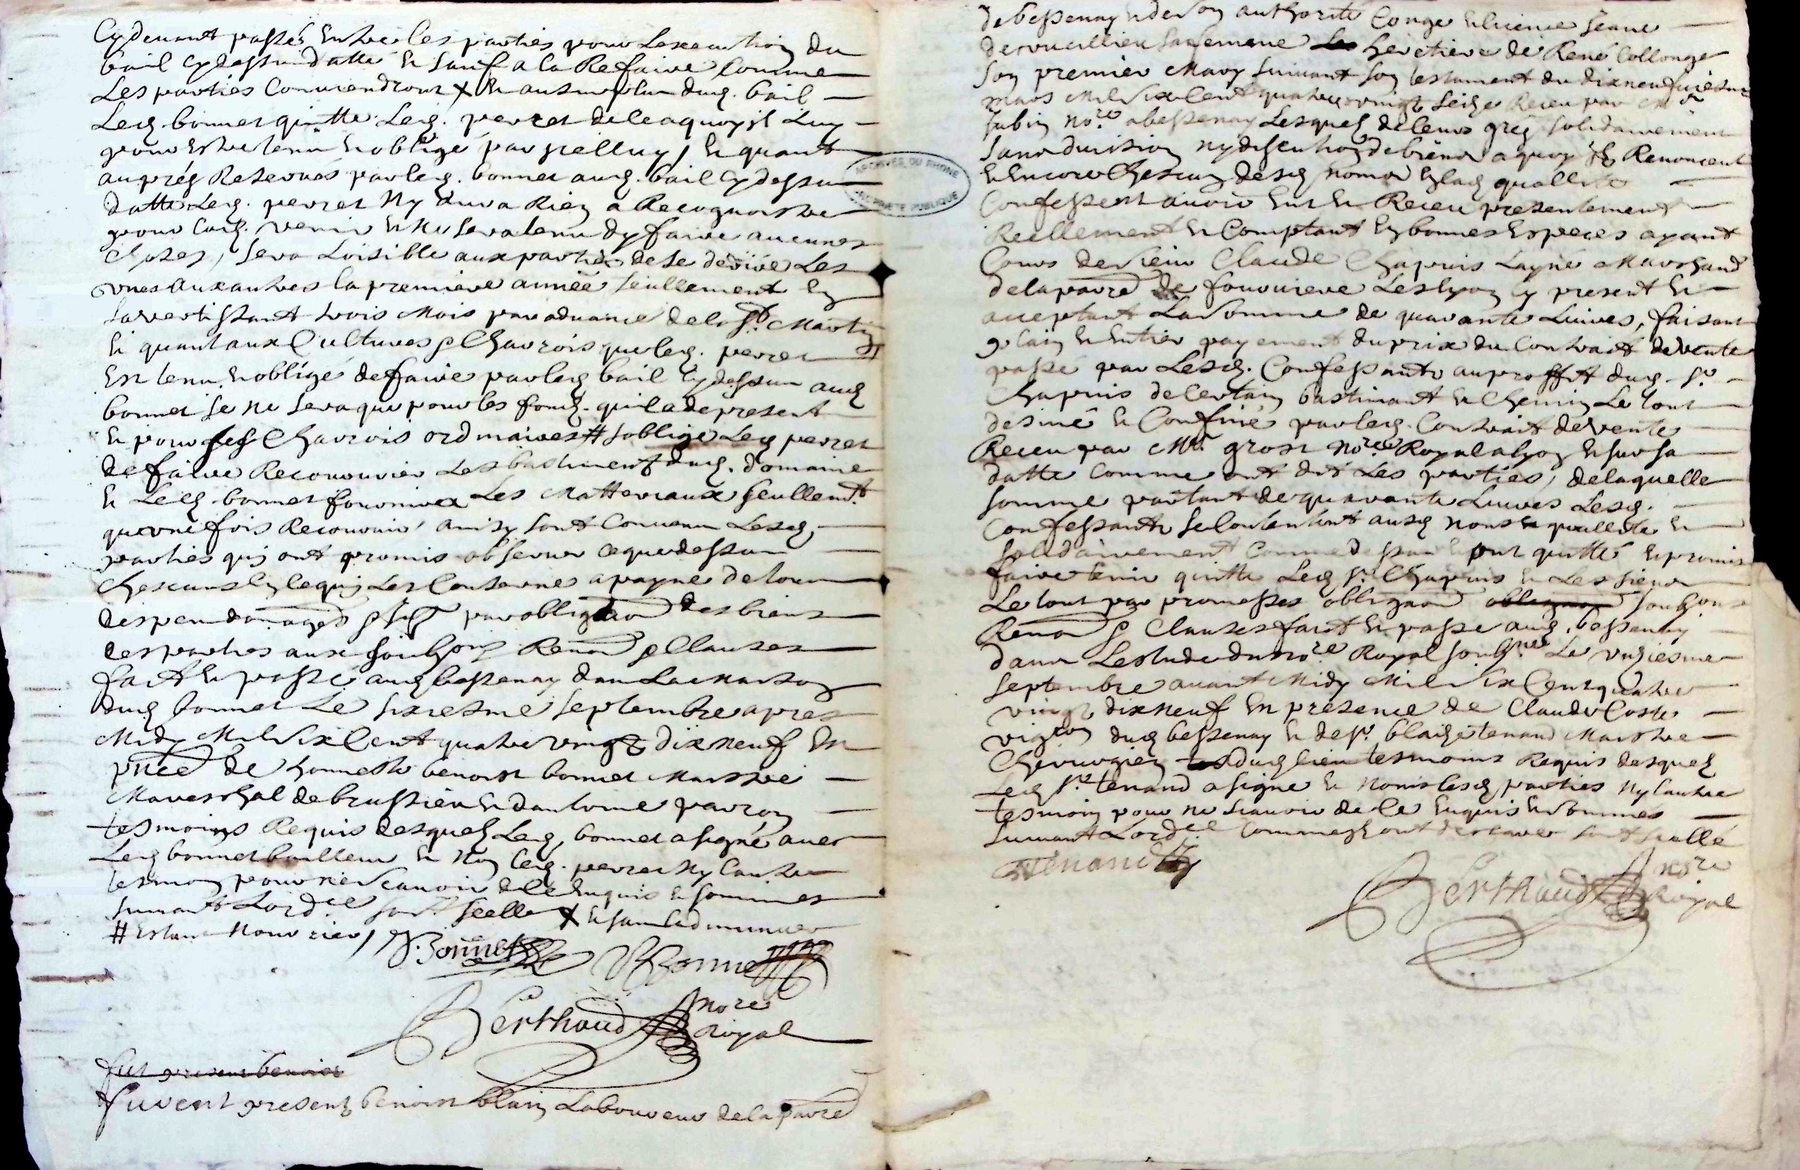 Cydevant passés entre les parties pour lexecution du
bail cydessus datté et sauf a la Refaire comme
Les parties Conviendront X et au surplus dud. bail
Led. bonnet quitte led. perret de ce a quoy il luy
pour estre tenu et obligé par icelluy, et quant
au prés Reservés par led. bonnet aud. bail cydessus
datté led. perret ny aura Rien a Recognoistre
pour led. et ne sera tenu dy faire aucunes
choses, sera loisible aux parties de se dédire Les
unes aux autres la premiere année seullement en
savertissant trois Mois par advance de la st. Martin
et quant aux Cultures & Charrois que led. perret
est tenu et obligé de faire par led bail cydessus aud
bonnet ce ne sera que pour les fonds quil a de present
et pour ses Charrois ordinaires # soblige Led perret
de faire Recouvrir Les bastiments dud. domaine
et Led. bonnet fournira Les Matteriaux seullemt.
une fois Recouvrir, ainsy sont Convenu Lesd.
parties qui ont promis observer ce que dessus
chescuns en ce qui Les Concerne a payne de tous
despens domages & par obligaon des biens
des parties aux soubzons Renon & Clauses
fait et passé aud bessenay dans La Maison
dud bonnet Le sixiesme septembre apres
Midy Mil six Cent quatre vingt dix neuf En
pnce de honneste benoist bonnet Maistre
Mareschal de brussieu et dantoine parron
tesmoins Requis desquels Led. bonnet a signé avec
Led bonnet bailleur et non led. perret ny lautre
tesmoin pour ne scavoir de ce enquis et sommés
suivant Lordce sera scellé X et sans diminuer
# Estant Nourrier,
B. Bonnet Bonnet
Berthaud Nore
Royal
fut present benoist
furent presents benoist blain Laboureur de la parre
de bessenay et de son authorité Congé et licence
sa femme heretiere de René Collonge
son premier Mary suivant son testament du dix neufviesme
mars Mil six Cent quatre vingt seize Receu par Mr.
Jubin nore a bessenay Lesquels de leurs grés solidairement
sans division ny discution de biens a quoy ils Renoncent
et encore chescun desd noms et lad quallité
Confessent avoir Eut et Receu presentement
Reellement et Comptant en bonnes Especes ayant
Cours de sieur Claude Chapuis Layné Marchand
de la parre de fourviere Les lyon cy present et
acceptant La somme de quarante Livres, faisant
plain et Entier payement du prix du Contrait de vente
passé par Lesd. Confessants au proffit dud. sr.
Chapuis de Certain bastiment et Chemin Le tout
designé et Confiné par led. Contrait de vente
Receu par Me. grost Nore Royal a lyon et sur sa
datte comme ont dit Les parties, de laquelle
somme partant de quarante Livres Lesd.
Confessants se Contentent ausd noms et quallité et
solidairement comme dessus et ont quitté et promis
faire tenir quitte Led sr. Chapuis et Les siens
Le tout par promesses obligaon obligaon soubzons
Renon & Clauses fait et passé aud. bessenay
dans Lestude du nore Royal soubzné Le unziesme
septembre avant Midy Mil six Cent quatre
vingt dix neuf En presence de Claude Coste
vigron dud bessenay et de sr. blaize tenand Maistre
Chirurgien dud lieu tesmoins Requis desquels
Led sr. tenand a signé et non lesd parties ny lautre
tesmoin pour ne scavoir de ce Enquis et sommés
suivant Lordce comme sera scellé
Tenand
Berthaud Nore
Royal
ARCHIVES DU RHONE